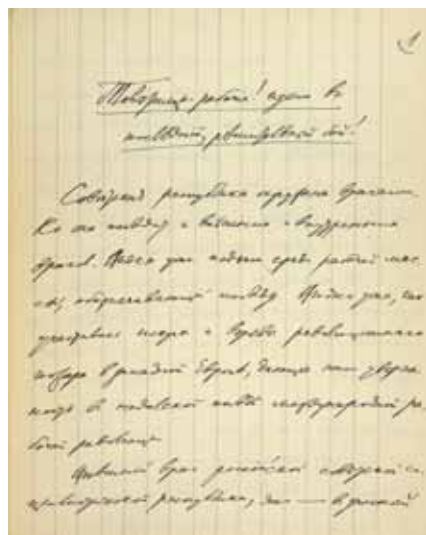 1
Товарищи-рабочие! идем в
последний, решительный бой!
Советская республика окружена врагами.
Но она победит и внешних и внутренних
врагов. Виден уже подъем среди рабочей мас-
сы, обеспечивающий победу. Видно уже, как
участились искры и взрывы революционного
пожара в западной Европе, дающие нам уверен-
ность в недалекой победе международной ра-
бочей революции.
Внешний враг российской советской со-
циалистической республики, это — в данный